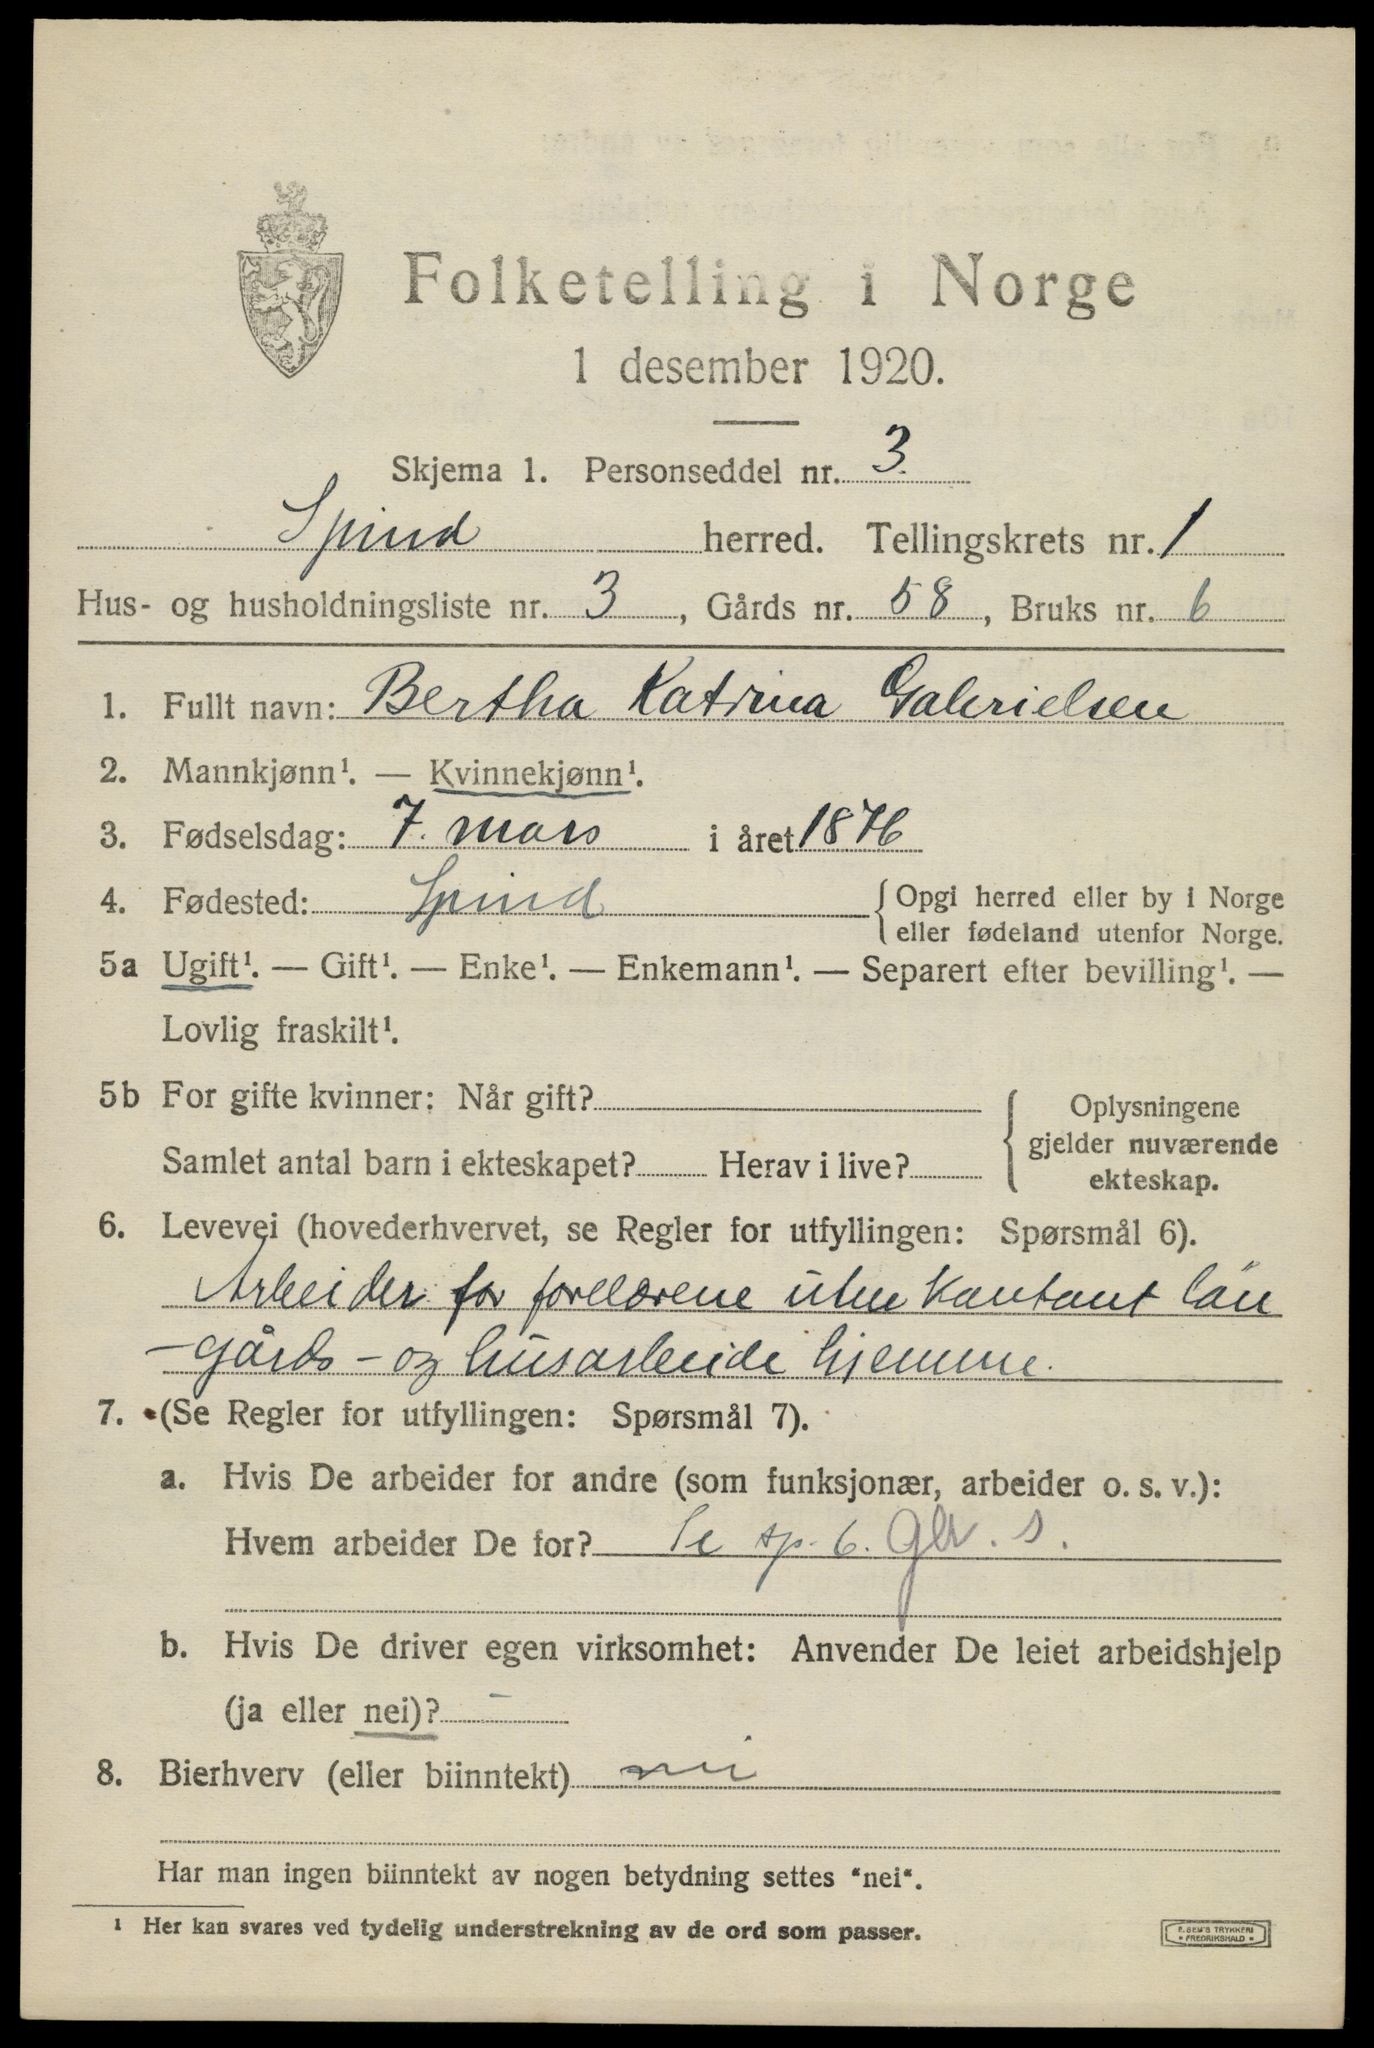 Folketelling i Norge
1 desember 1920.
Skjema 1. Personseddel nr. 3.
Spind herred. Tellingskrets nr. 1
Hus- og husholdningsliste nr. 3, Gårds nr. 58, Bruks nr. 6
1. Fullt navn: Bertha Katrina Gabrielsen
2. Mannkjønn¹. — Kvinnekjønn¹.
3. Fødselsdag: 7. mars i året 1876
4. Fødested: Spind {Opgi herred eller by i Norge
eller fødeland utenfor Norge.
5a Ugift¹. — Gift¹. — Enke¹. — Enkemann¹. — Separert efter bevilling¹. —
Lovlig fraskilt¹.
5b For gifte kvinner: Når gift?
Samlet antal barn i ekteskapet? Herav i live?
Oplysningene
gjelder nuværende
ekteskap.
6. Levevei (hovederhvervet, se Regler for utfyllingen: Spørsmål 6).
Arbeider for forelærene uten kontant lön
- gårds - og husarbeide hjemme.
7. (Se Regler for utfyllingen: Spørsmål 7).
a. Hvis De arbeider for andre (som funksjonær, arbeider o. s. v.):
Hvem arbeider De for? Se sp. 6. s.
b. Hvis De driver egen virksomhet: Anvender De leiet arbeidshjelp
(ja eller nei)? –
8. Bierhverv (eller biinntekt) nei
Har man ingen biinntekt av nogen betydning settes "nei".
¹ Her kan svares ved tydelig understrekning av de ord som passer.
E. SEM'S TRYKKERI
• FREDRIKSHALD •